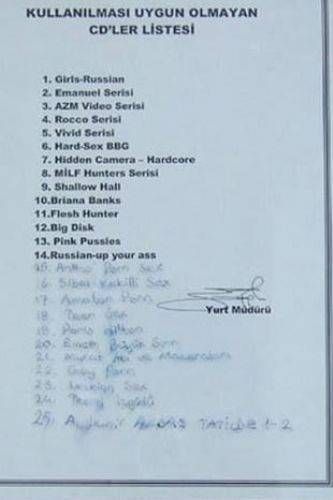 KULLANILMASI UYGUN OLMAYAN
CD'LER LİSTESİ
1. Girls-Russian
2. Emanuel Serisi
3. AZM Video Serisi
4. Rocco Serisi
5. Vivid Serisi
6. Hard-Sex BBG
7. Hidden Camera – Hardcore
8. MİLF Hunters Serisi
9. Shallow Hall
10.Briana Banks
11.Flesh Hunter
12.Big Disk
13. Pink Pussies
14.Russian-up your ass
15. Porn Sex
16. Sibel Kekilli Sex
17. Amatör Porn
18. Teen Sex
19. Paris Hilton
20.
21.
22. Gay Porn
23. Lezbiyen Sex
24.
25. TATİLDE 1-2
Yurt Müdürü